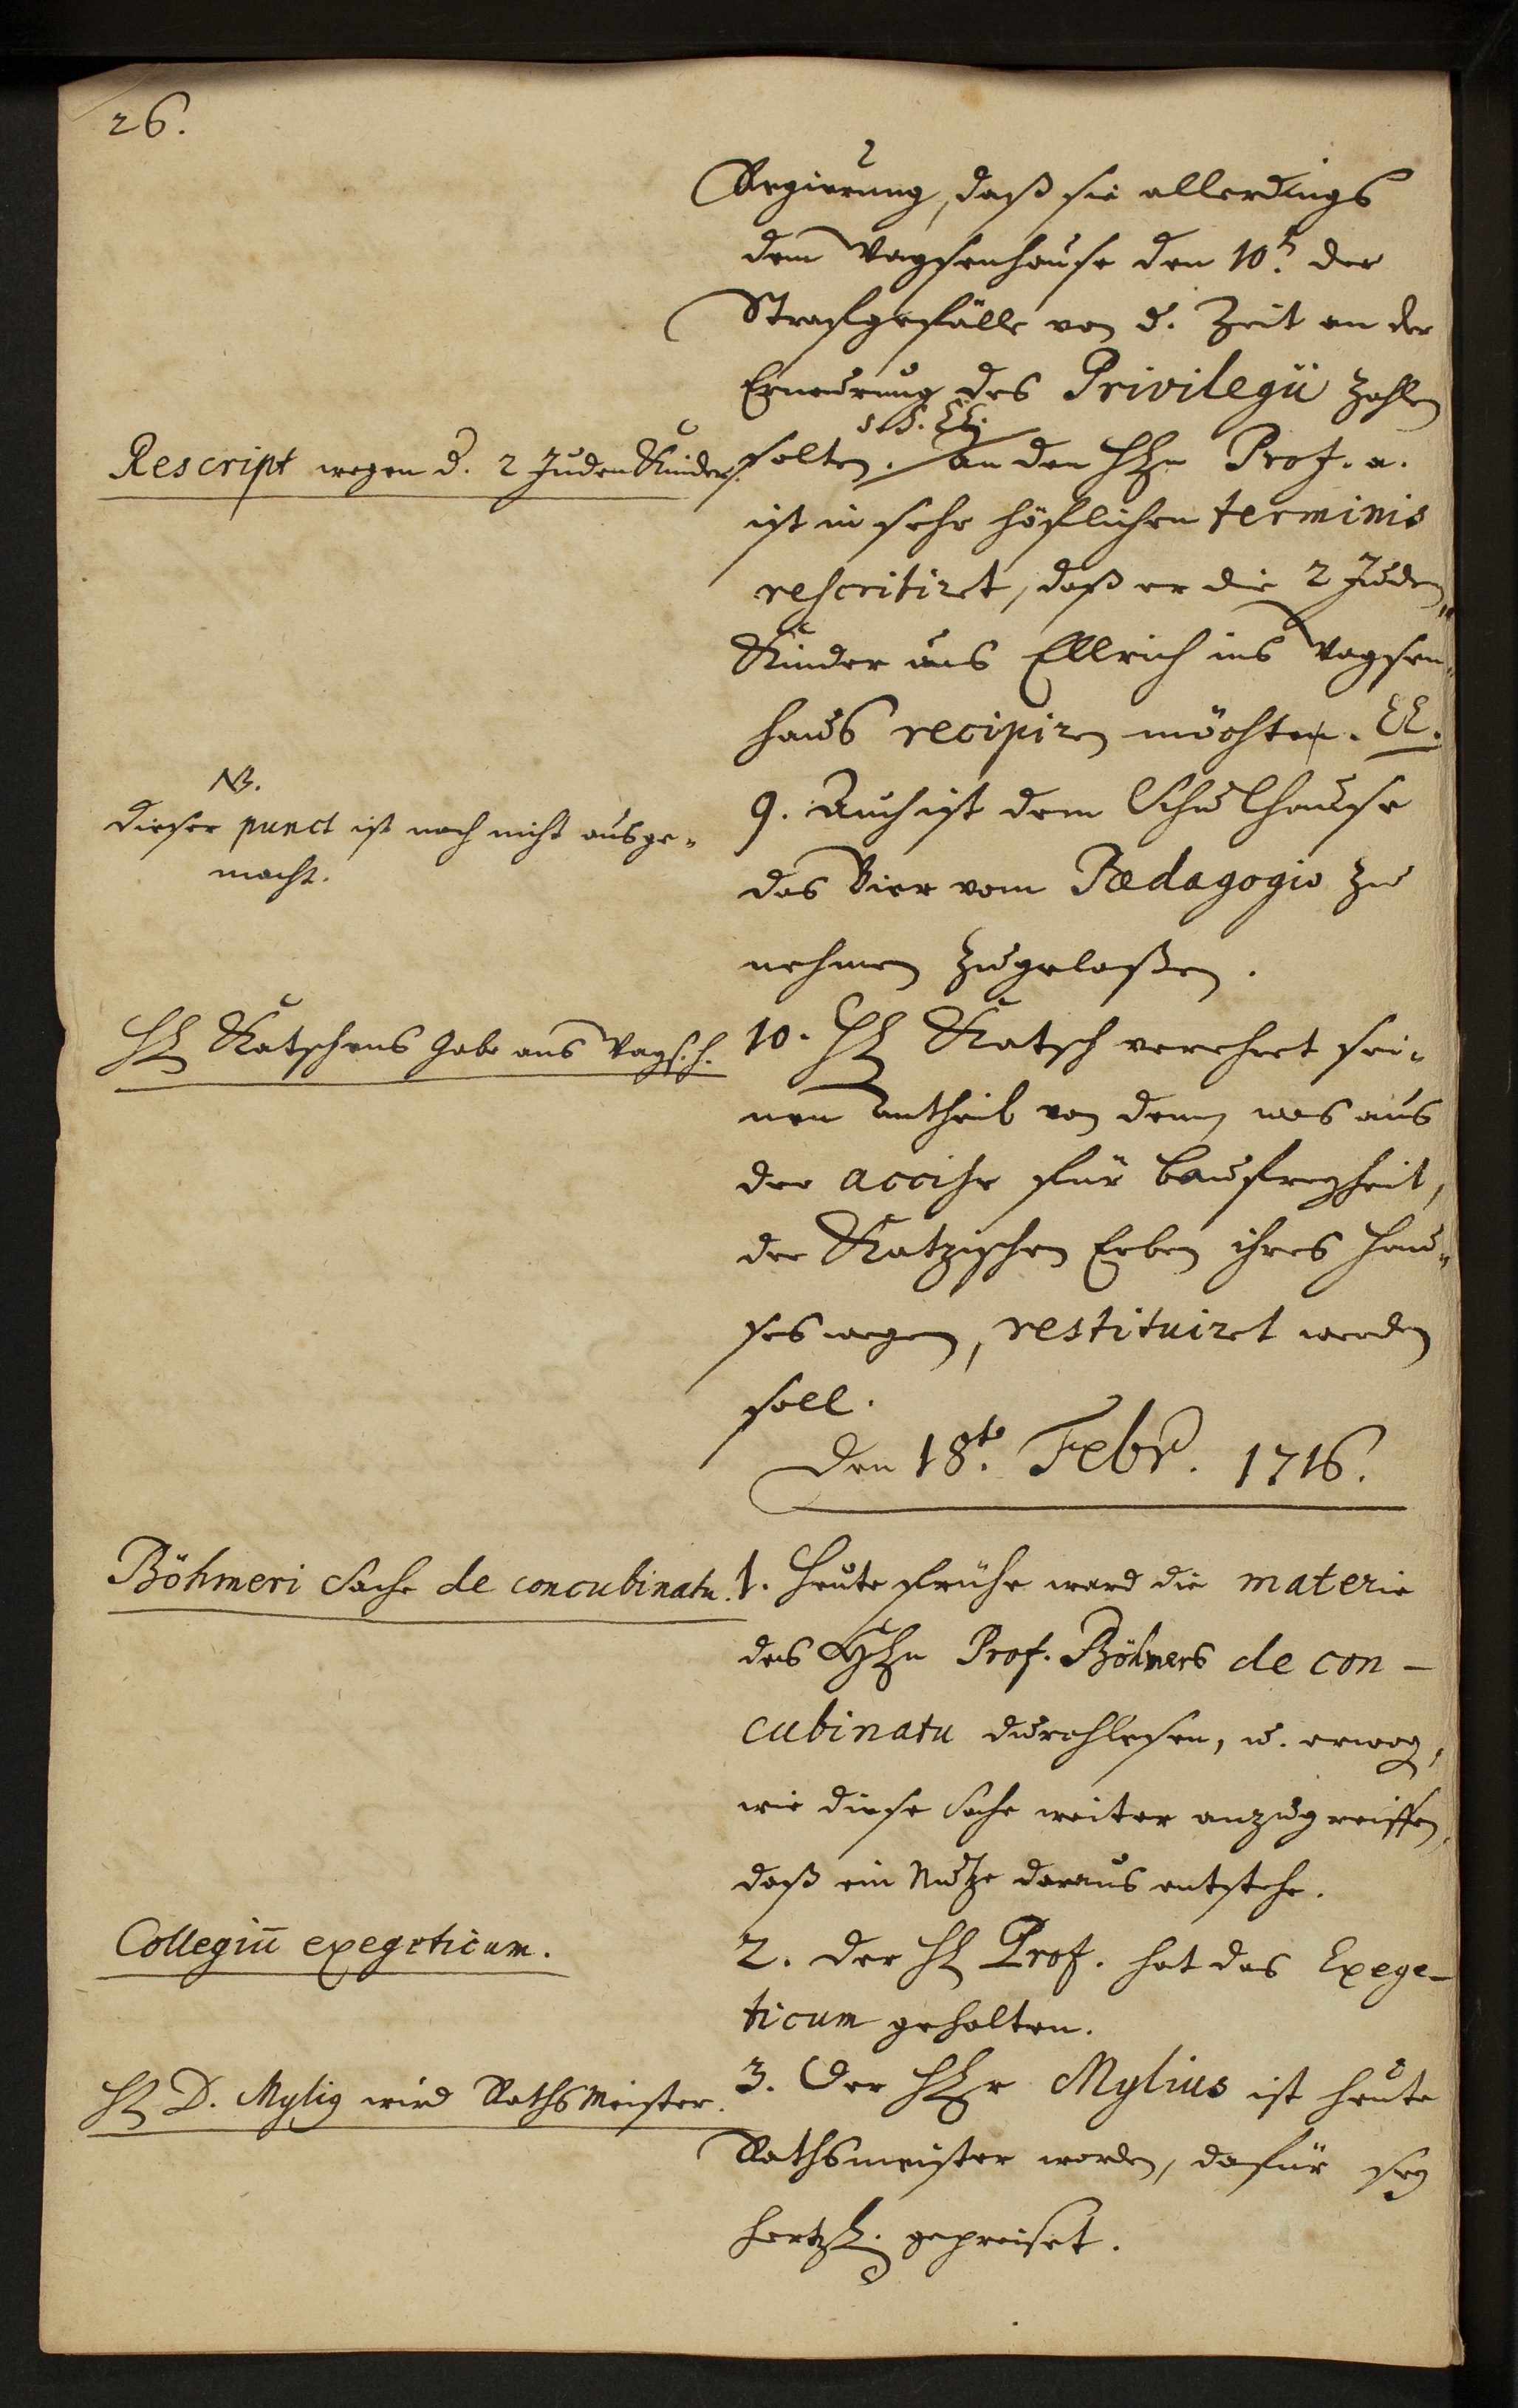 26.
Regierung, daß sie allerdings
dem Waysenhause den 10t. der
Straffgefälle von d. Zeit an der
Erneurung des Privilegii zahlen
Rescript wegen d. 2 Juden Kinder.
solten. an den HEn Prof. a.
ist in sehr höflichen terminis
rescribiret, daß er die 2 Juden-
Kinder aus Ellrich ins Waysen-
haus recipiren möchten.
NB.
dieser punct ist noch nicht ausge-
macht.
9. Auch ist dem Schulhause
das Bier vom Pædagogio zu
nehmen zugelaßen.
HE Katschens Gabe ans Ways.h.
10. HE Katsch verehret sei-
nen Antheil von dem, was aus
der accise für baufreyheit,
der Katzischen Erben ihres Hau-
ses wegen, restituiret werden
soll.
Den 18te. Febr. 1716.
Böhmeri Sache de concubinatu.
1. Heute frühe ward die materie
des HEn Prof. Böhmers de con-
cubinatu durchlesen, u. erwog,
wie diese Sache weiter anzugreiffen,
daß ein Nutze daraus entstehe.
Collegiū exegeticum.
2. Der HE Prof. hat das Exege-
ticum gehalten.
HE D. Mylig wird RathsMeister.
3. Der HEr Mylius ist heute
Rathsmeister worden, dafür sey
hertzl. gepreiset.